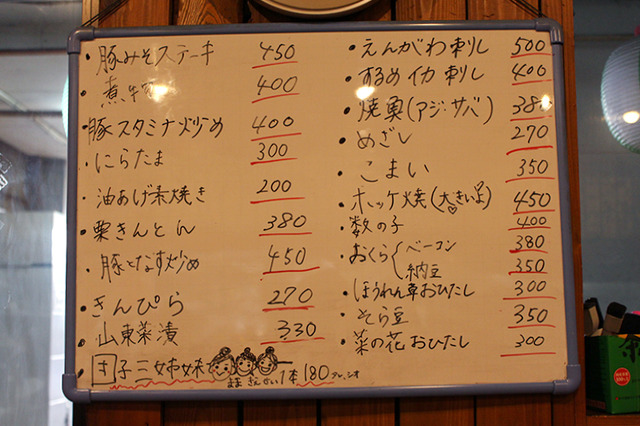 ・豚みそステーキ 450
・煮 400
・豚スタミナ炒め 400
・にらたま 300
・油あげ素焼き 200
・栗きんとん 380
・豚となす炒め 450
・きんぴら 270
・山東菜漬 330
・子三姉妹 1本180 タレ、シオ
・えんがわ刺し 500
・するめイカ刺し 400
・焼魚(アジ・サバ) 380
・めざし 270
・こまい 350
・ホッケ焼(大きいよ♡) 450
・数の子 400
・おくら ベーコン 380
納豆 350
・ほうれん草おひたし 300
・そら豆 350
・菜の花おひたし 300